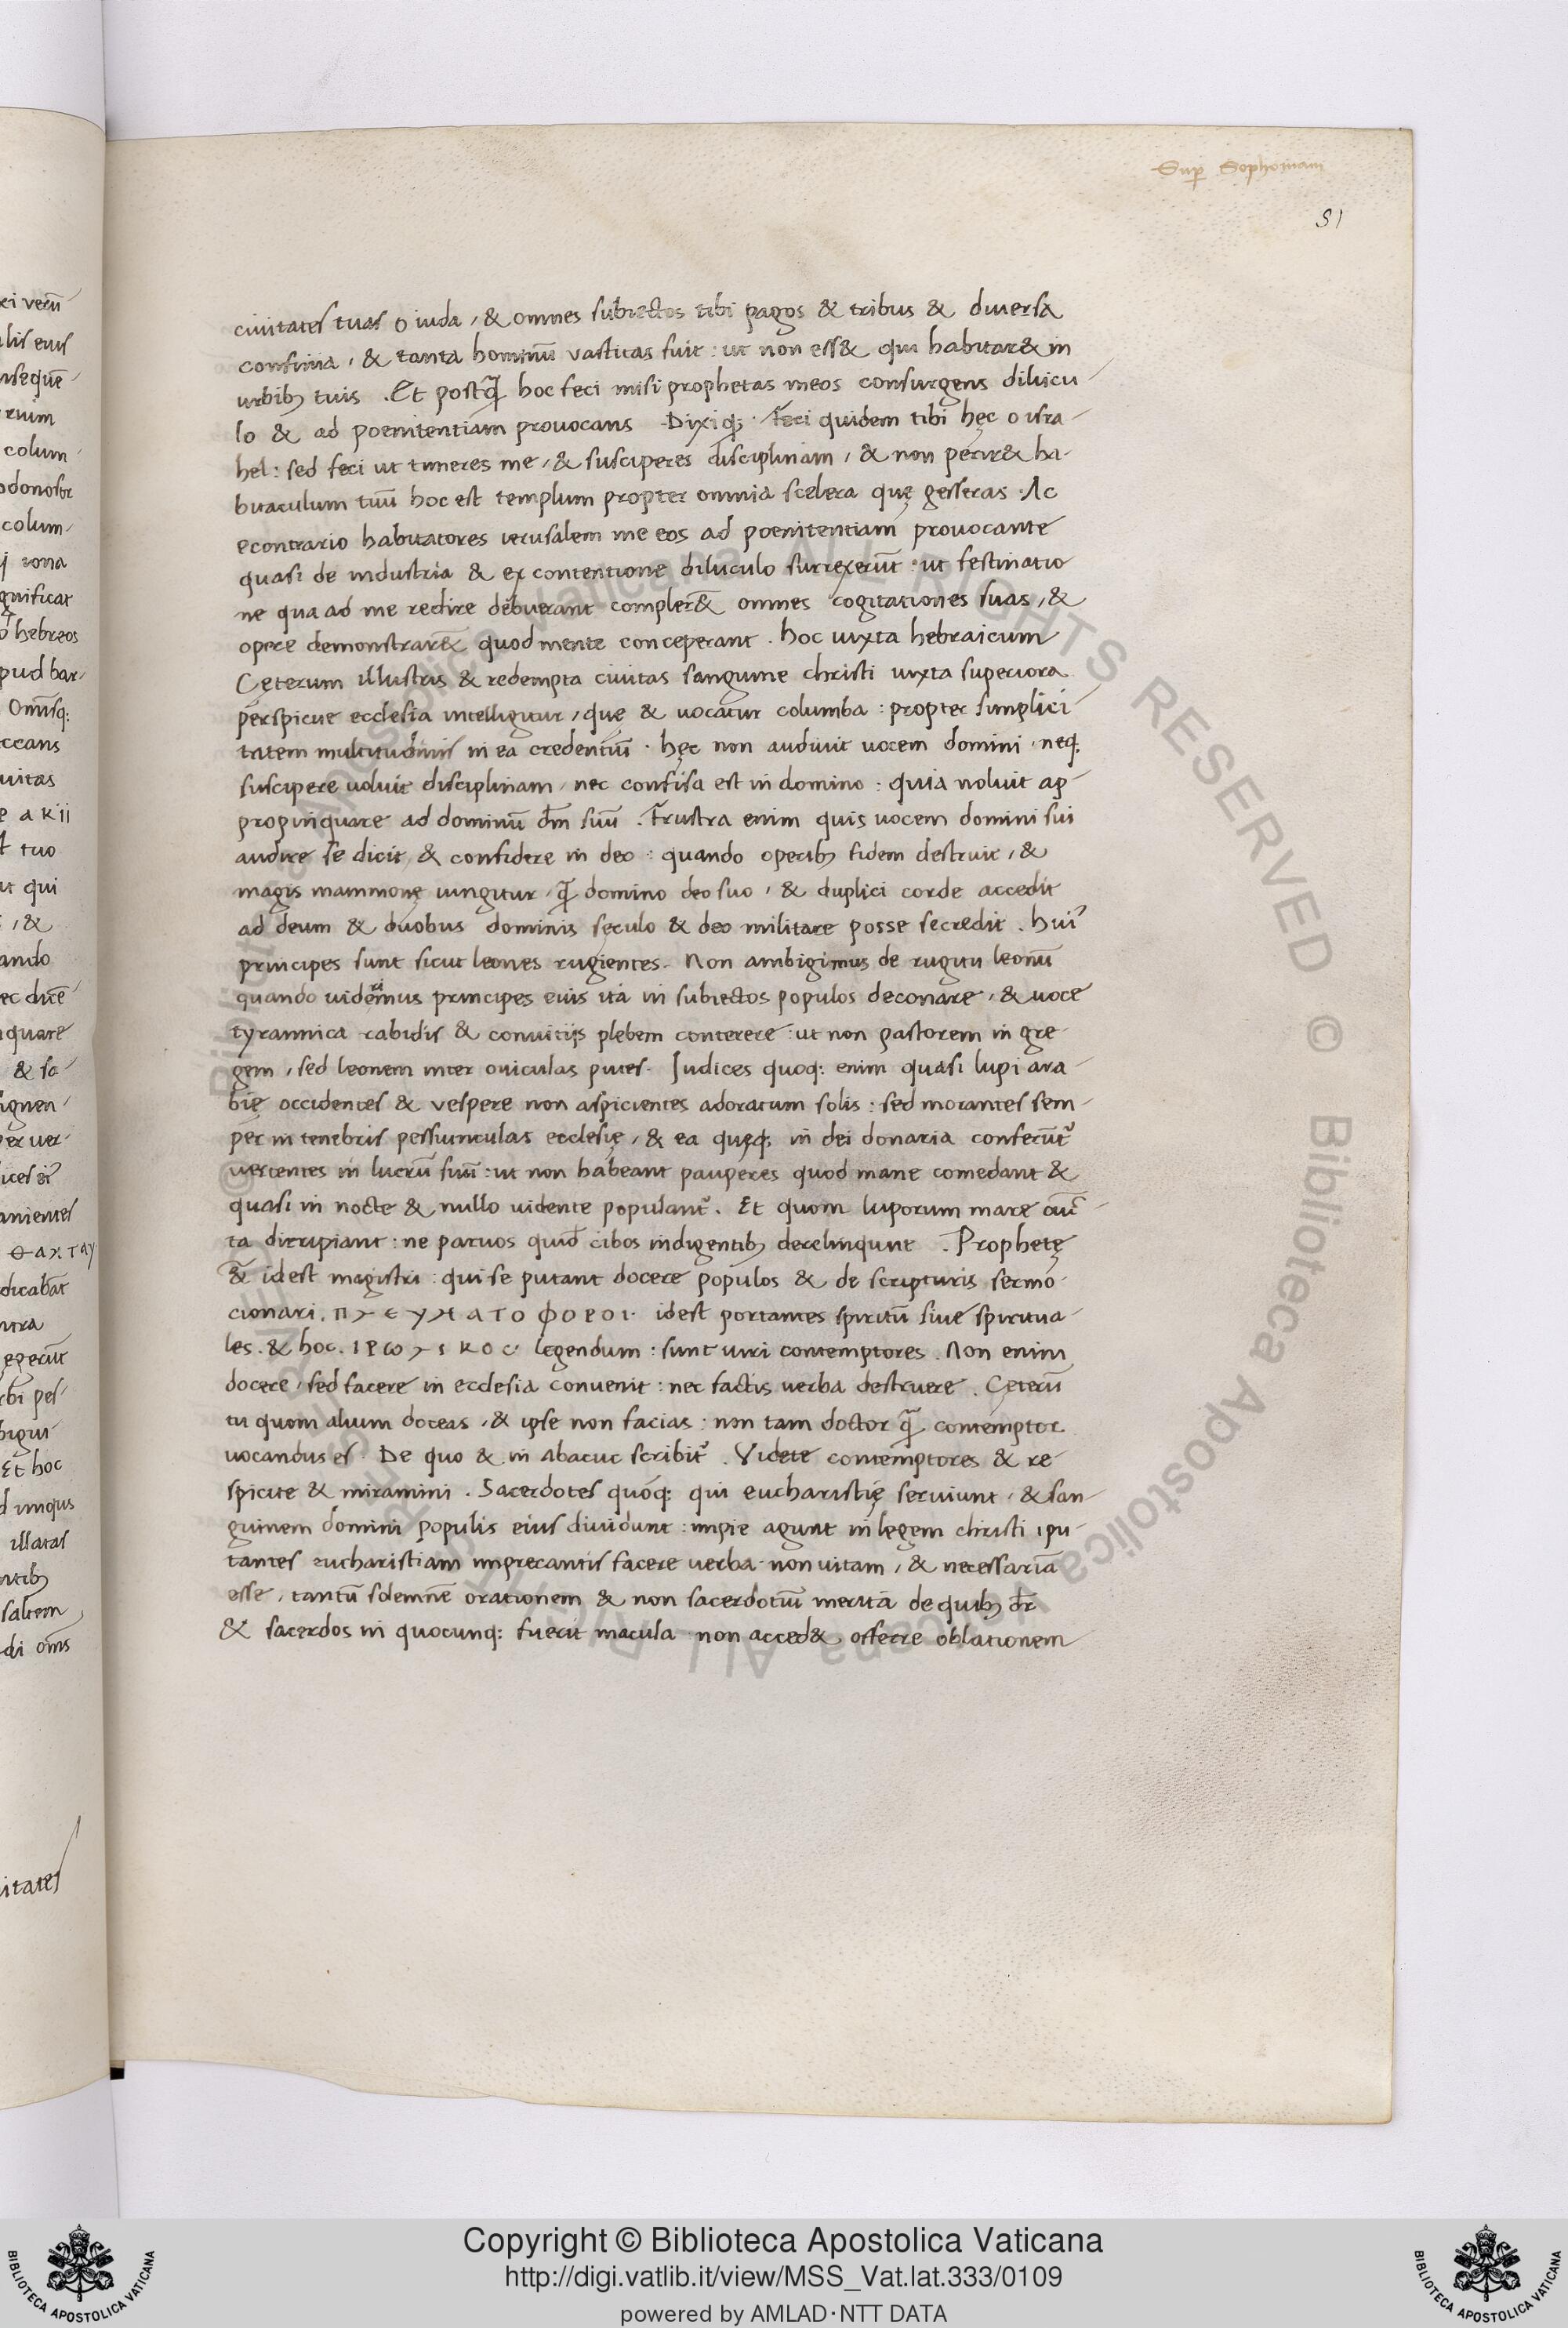 Sup Sophoniam
81
ciuitates tuas o iuda, & omnes subiectos tibi pagos & tribus & diuersa
confinia, & tanta hominū vastitas fuit: ut non ess& qui habitar& in
urbibꝫ tuis. Et postq̃ hoc feci misi prophetas meos consurgens dilucu
lo & ad poenitentiam prouocans Dixiqꝫ. Feci quidem tibi hęc o isra-
hel: sed feci ut timeres me, & susciperes disciplinam, & non perir& ha-
bitaculum tuū hoc est templum propter omnia scelera quę gesseras. Ac
econtrario habitatores ierusalem me eos ad poenitentiam prouocante
quasi de industria & ex contentione diluculo surrexerūt: ut festinatio
ne qua ad me redire debuerant compler&̄ omnes cogitationes suas, &
opere demonstrar&̄ quod mente conceperant. hoc iuxta hebraicum
Cęterum illustris & redempta ciuitas sanguine christi iuxta superiora
perspicue ecclesia intelligitur, quę & uocatur columba: propter simplici
tatem multitudinis in ea credentiū. hęc non audiuit uocem domini, neqꝫ
suscipere uoluit disciplinam, nec confisa est in domino: quia noluit ap-
propinquare ad dominū dm̄ suū. Frustra enim quis uocem domini sui
audire se dicit, & confidere in deo: quando operibꝫ fidem destruit, &
magis mammonę iungitur, q̃ domino deo suo, & duplici corde accedit
ad deum & duobus dominis sęculo & deo militare posse se credit. hui᾽
principes sunt sicut leones rugientes. Non ambigimus de rugitu leonū
quando uidemus principes eius ita in subiectos populos deconare, & uoce
tyrannica rabidis & conuitijs plebem conterere: ut non pastorem in gre
gem, sed leonem inter ouiculas putes. Iudices quoq: enim quasi lupi ara-
bię occidentes & vespere non aspicientes adoratum solis: sed morantes sem-
per in tenebris possiunculas ecclesię, & ea quęqꝫ in dei donaria conferūt᾽
uertentes in lucrū suū: ut non habeant pauperes quod mane comedant &
quasi in nocte & nullo uidente populant᾽. Et quom luporum more cūc-
ta diripiant: ne paruos quid̄ cibos indigentibꝫ derelinqunt. Prophetę
&̄ idest magistri: qui se putant docere populos & de scripturis sermo
cionari. ΠΝΕΥΜΑΤΟΦΟΡΟΙ. idest portantes spiritū siue spiritua-
les. & hoc. ΙΡΩΝΙΚΟC legendum: sunt uiri contemptores. Non enim
docere, sed facere in ecclesia conuenit: nec factis uerba destruere. Cęterū
tu quom alium doceas, & ipse non facias: non tam doctor q̃ contemptor
uocandus es. De quo & in abacuc scribit᾽. Videte contemptores & re
spicite & miramini. Sacerdotes quoq: qui eucharistię seruiunt, & san-
guinem domini populis eius diuidunt: impie agunt in legem christi, pu-
tantes eucharistiam imprecantis facere uerba non uitam, & necessariā
esse, tantū solemnē orationem & non sacerdotiū merita de quibꝫ dr̄
& sacerdos in quocunq: fuerit macula non acced& offerre oblationem
Copyright © Biblioteca Apostolica Vaticana
http://digi.vatlib.it/view/MSS_Vat.lat.333/0109
powered by AMLAD·NTT DATA